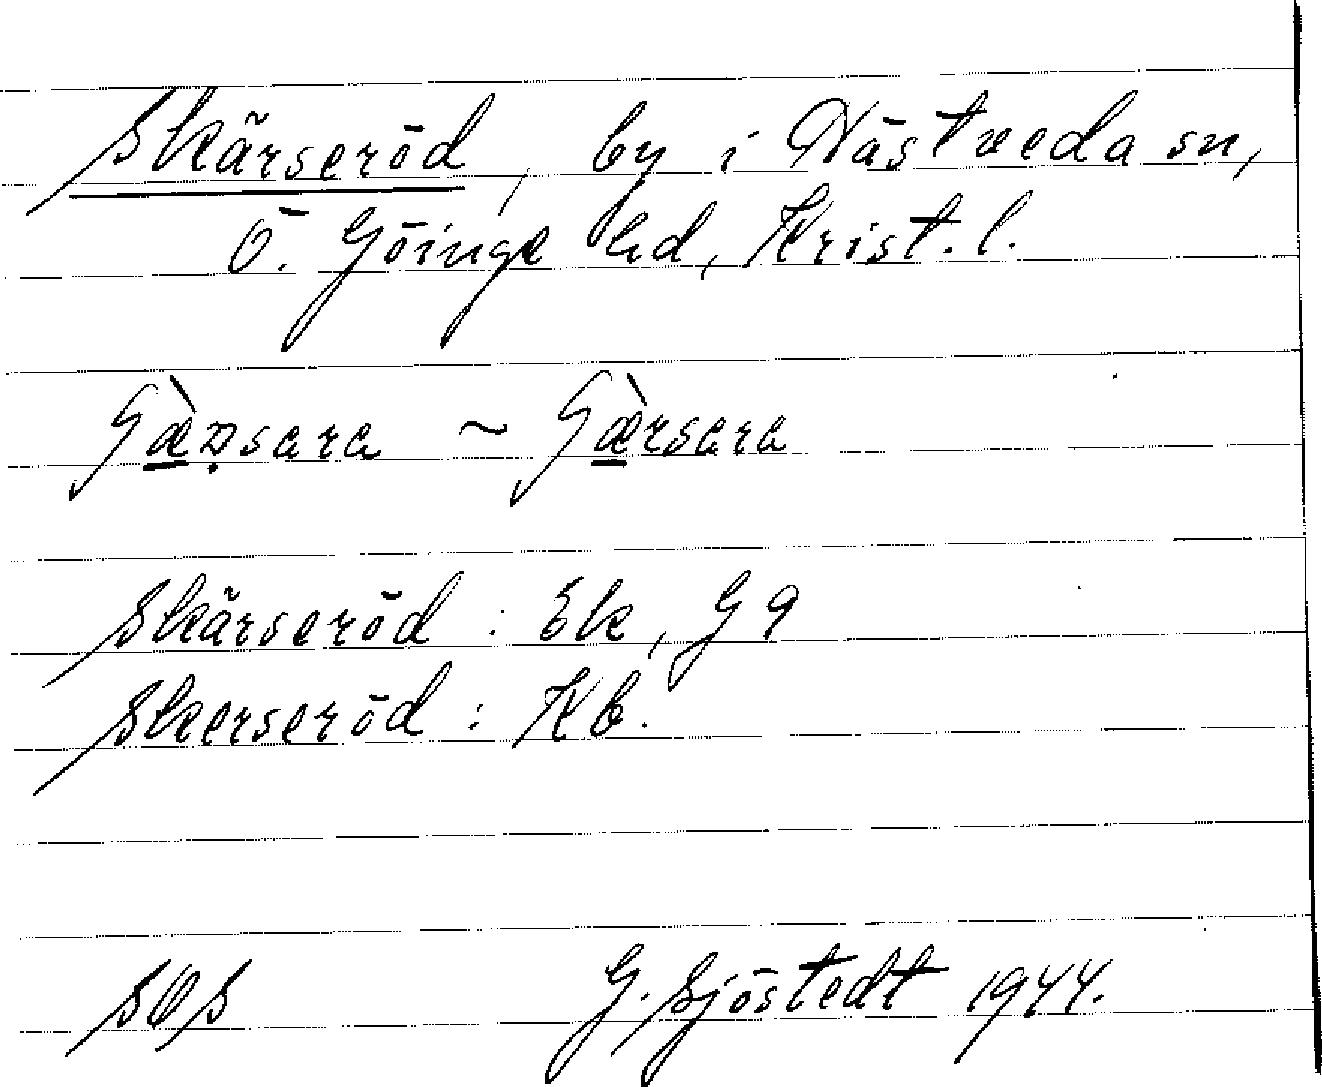 Skärseröd, by i Nästveda sn,
Ö. Göinge hd, Krist. l.
~ Gæ̀rsara
Skärseröd : Ek, G 9
Skerseröd : Kb.
SOS G. Sjöstedt 1944.